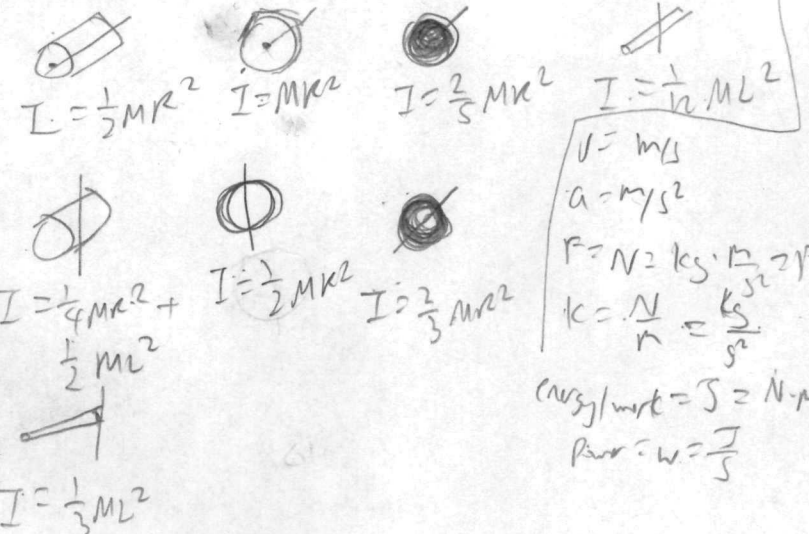 I = 1/2 MR²
I = MR²
I = 2/5 MR²
I = 1/12 ML²
I = 1/4 MR² +
1/2 ML²
I = 1/2 MR²
I = 2/3 MR²
I = 1/3 ML²
v = m/s
a = m/s²
F = N = kg · m/s² =
k = N/m = kg/s²
energy/work = J = N·m
Power = W = J/s